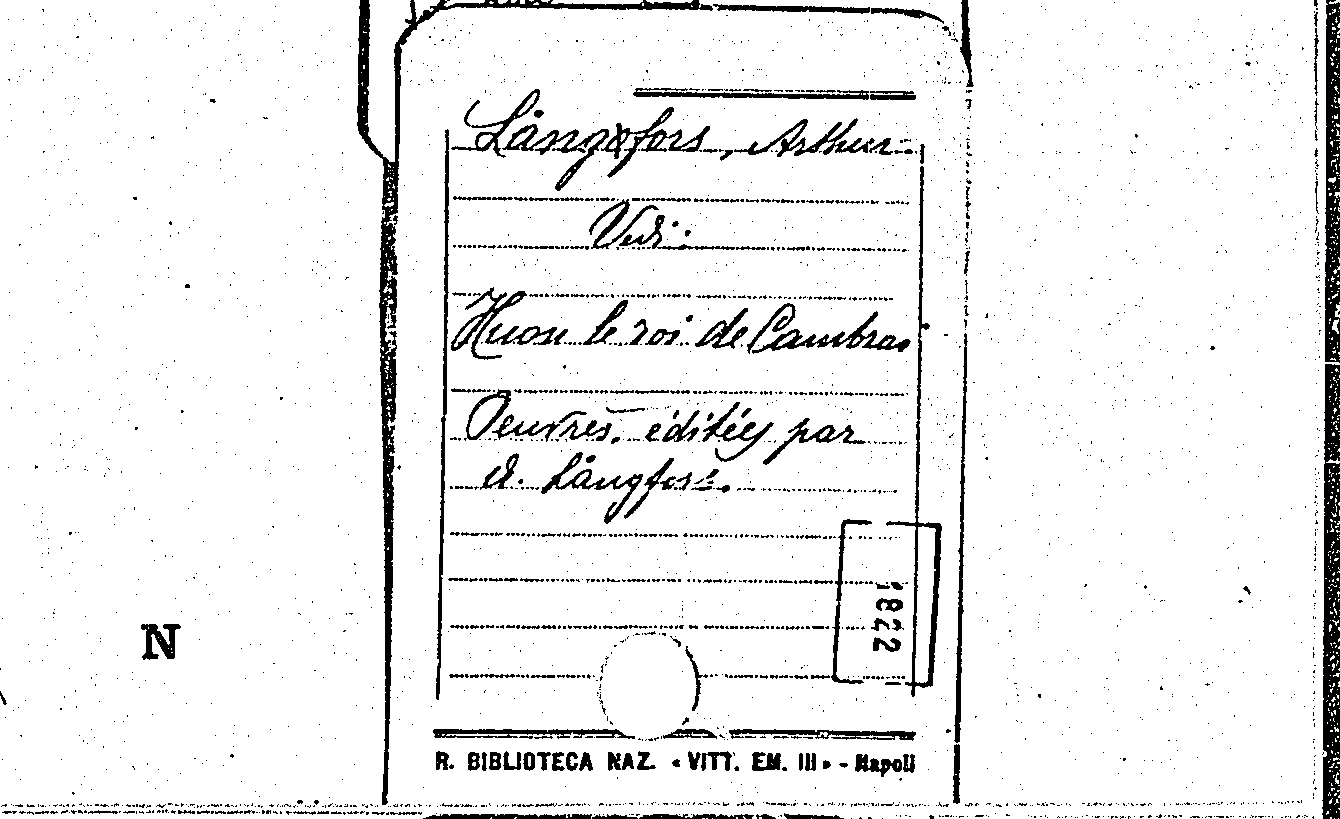 Långfors, Arthur.
Vedi:
Huon le roi de Cambrai
Oeuvres, éditées par
A. Långfors.
1822
N
R. BIBLIOTECA NAZ. « VITT. EM. III » - Napoli